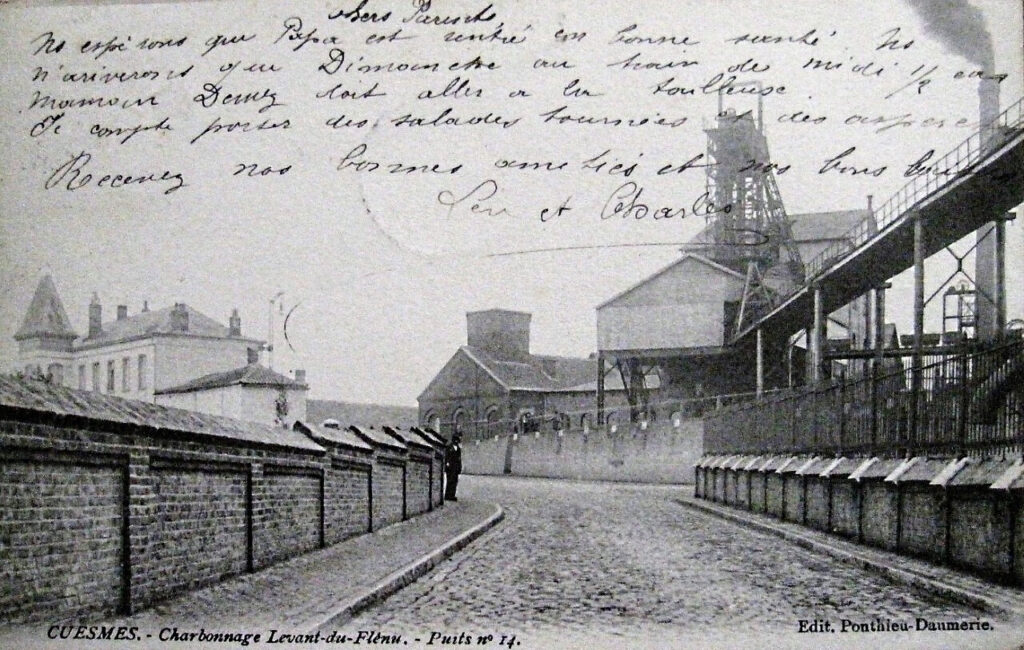 chers Parents
Ns espérons que Papa est rentré en bonne santé. Ns
n'ariverons qu Dimanche au train de midi 1/2 car
maman Demez doit aller a la
Je compte porter des salades tournées et des
Recevez nos bonnes amitiés et nos bons
et Charles
CUESMES. - Charbonnage Levant-du-Flénu. - Puits n° 14.
Edit. Ponthieu-Daumerie.